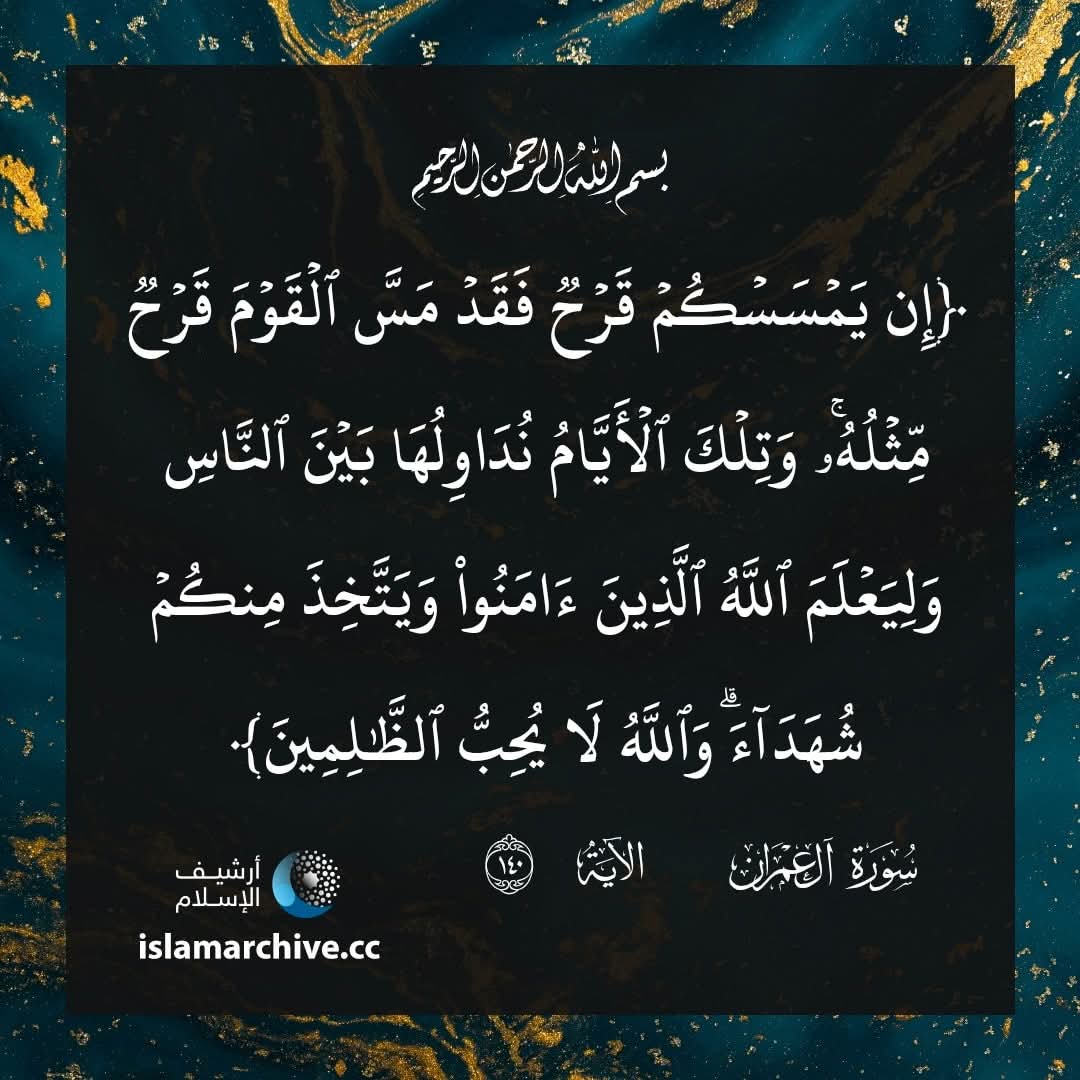 بسم الله الرحمن الرحيم
﴿إِن يَمۡسَسۡكُمۡ قَرۡحٞ فَقَدۡ مَسَّ ٱلۡقَوۡمَ قَرۡحٞ
مِّثۡلُهُۥۚ وَتِلۡكَ ٱلۡأَيَّامُ نُدَاوِلُهَا بَيۡنَ ٱلنَّاسِ
وَلِيَعۡلَمَ ٱللَّهُ ٱلَّذِينَ ءَامَنُواْ وَيَتَّخِذَ مِنكُمۡ
شُهَدَآءَۗ وَٱللَّهُ لَا يُحِبُّ ٱلظَّٰلِمِينَ﴾
سُورَة آل عِمْرَان الآيَة ١٤٠
أرشيف
الإسلام
islamarchive.cc